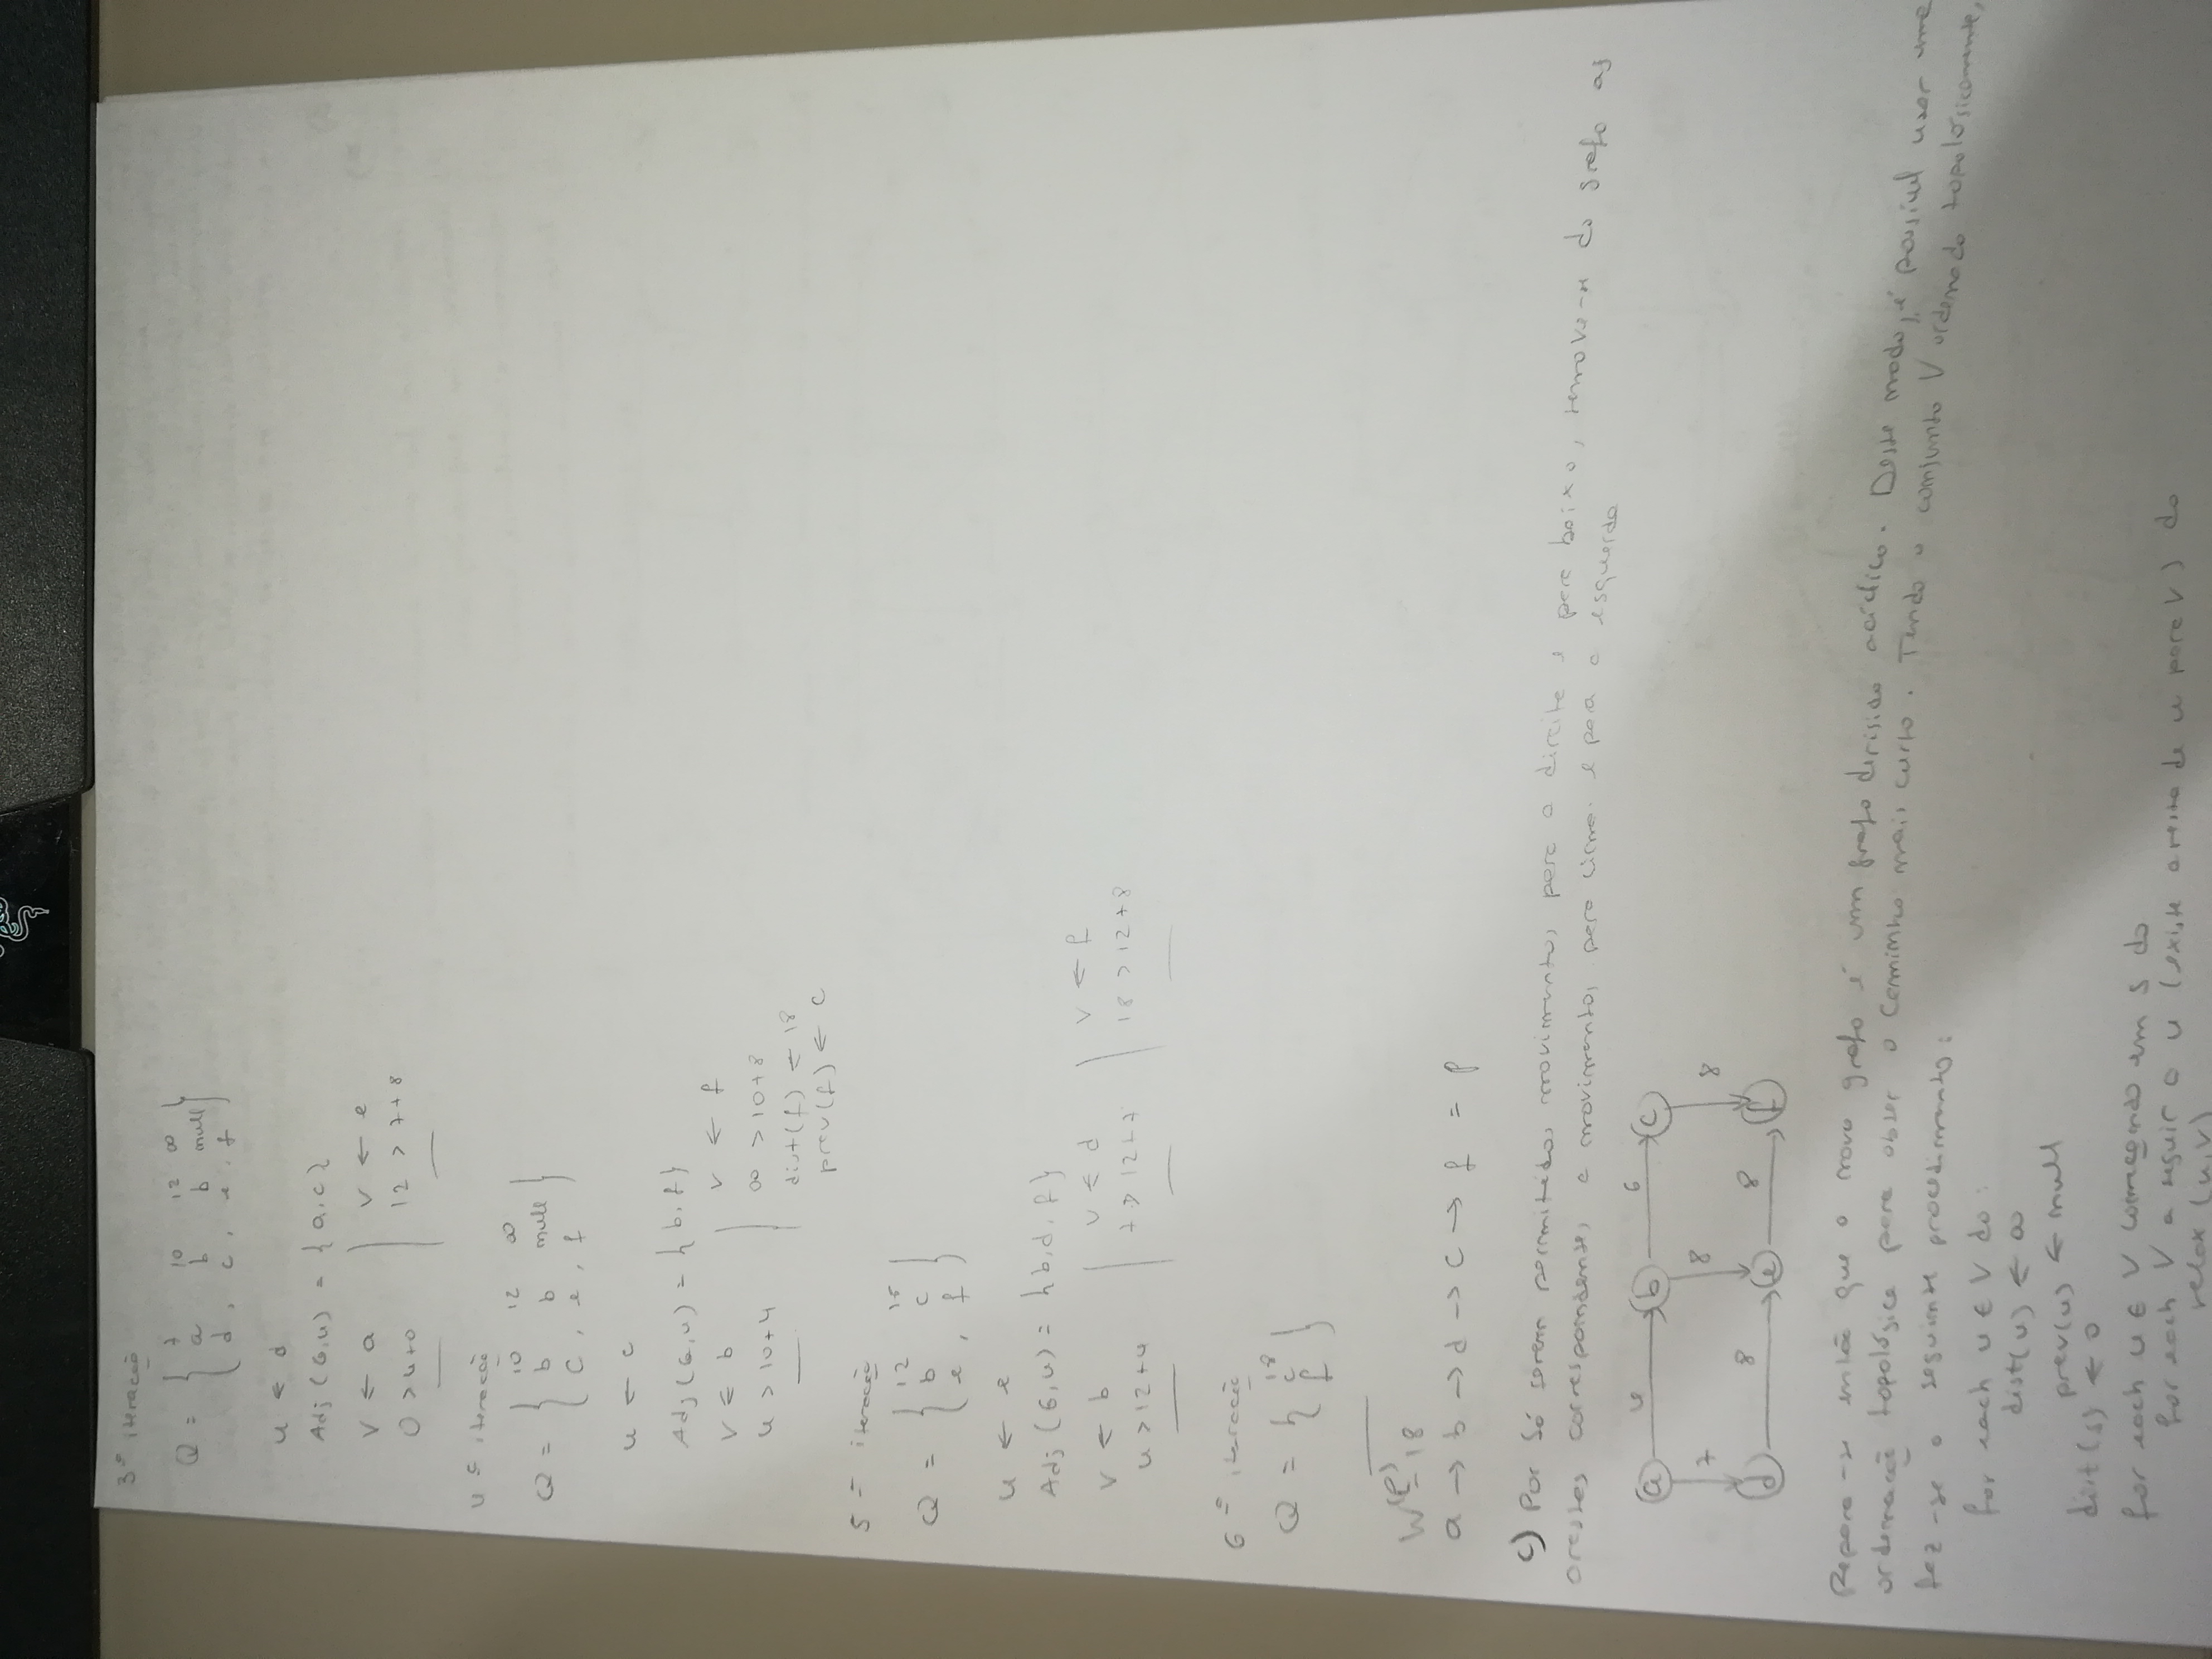 3ª iteração
7 10 12 ∞
Q = { a b b null }
d , c , e , f
u ← d
Adj (G,u) = {a,c}
v ← a | v ← e
0 > 4+0 | 12 > 7+8
4ª iteração
10 12 ∞
Q = { b b null }
c , e , f
u ← c
Adj (G,u) = {b,f}
v ← b | v ← f
4 > 10+4 | ∞ > 10+8
dist(f) ← 18
prev(f) ← c
5ª iteração
12 18
Q = { b c }
e , f
u ← e
Adj (G,u) = {b,d,f}
v ← b | v ← d | v ← f
4 > 12+4 | 7 > 12+7 | 18 > 12+8
6ª iteração
18
Q = { c }
f
W(p) = 18
a → b → d → c → f = p
c) Por só serem permitidos movimentos para a direita e para baixo, remove-se do grafo as
arestas correspondentes a movimentos para cima e para a esquerda
a 4 b 6 c
7 8 8
d 8 e 8 f
Repare-se então que o novo grafo é um grafo dirigido acíclico. Deste modo, é possível usar uma
ordenação topológica para obter o caminho mais curto. Tendo o conjunto V ordenado topológicamente,
fez-se o seguinte procedimento:
for each u ∈ V do:
dist(u) ← ∞
prev(u) ← null
dist(s) ← 0
for each u ∈ V começando em s do
for each V a seguir a u (existe aresta de u para V) do
relax (u,v)